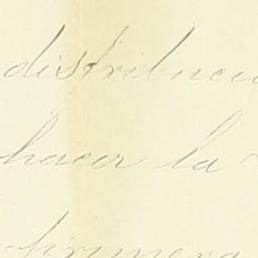 distribució
hacer la
primera